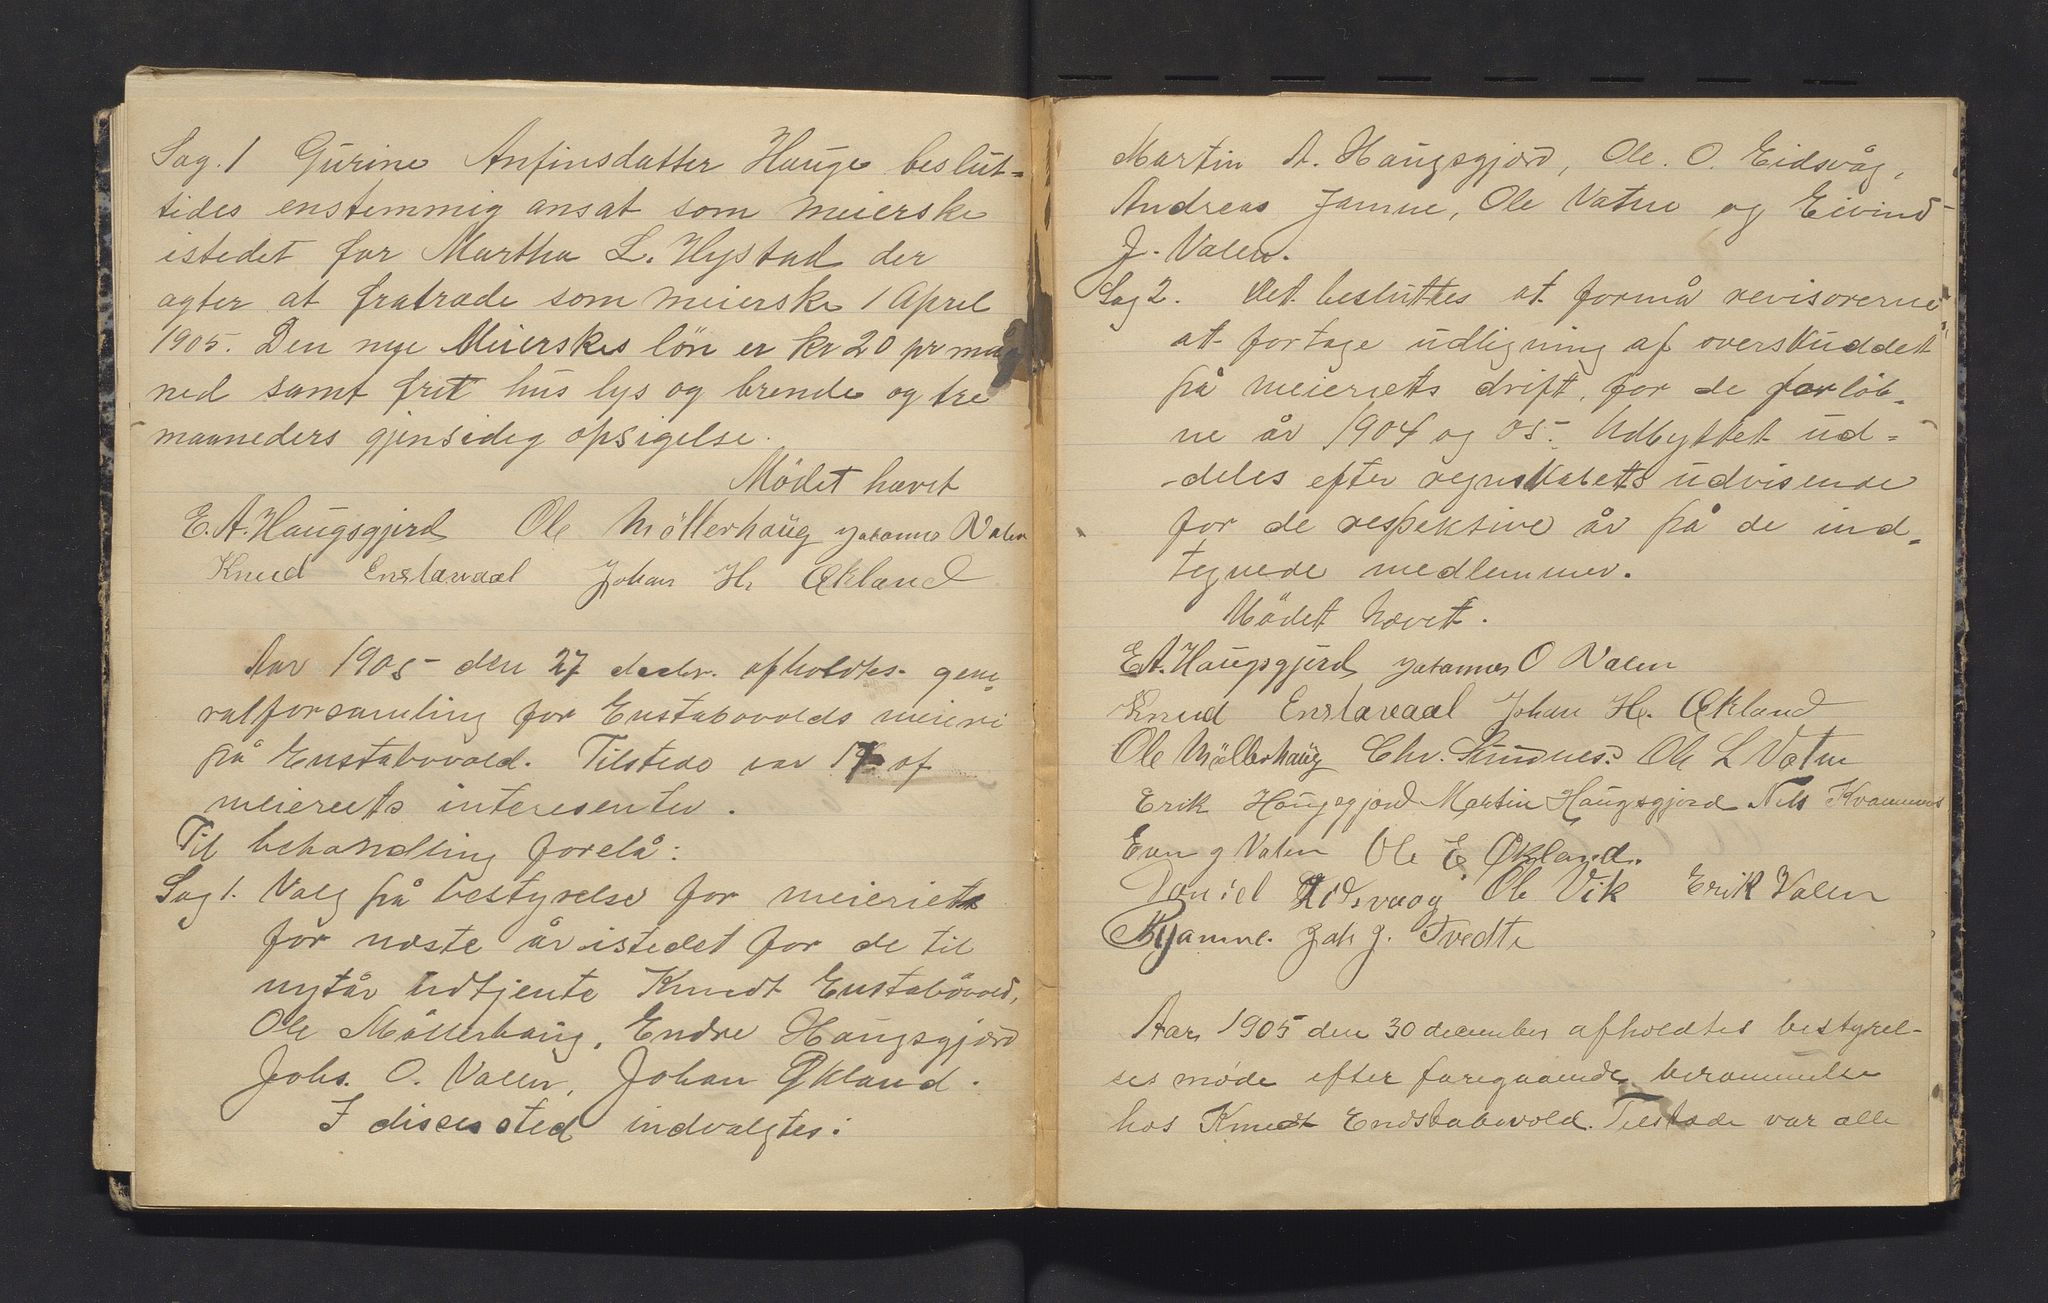 Sag. 1 Gurine Anfinsdatter Hauge beslut-
tides enstemmig ansat som meierske
istedet for Martha L. Hystad der
agter at fratræde som meierske 1 April
1905. Den nye Meierskes lön er kr 20 pr maa
ned samt frit hus lys og brende og tre
maaneders gjensidig opsigelse.
Mödet hævet
E. A. Haugsgjerd Ole Möllerhaug Johannes Valen
Knud Enstavaal Johan H. Økland
Aar 1905 den 27 decbr. afholdtes gene
ralforsamling for Enstabovolds meieri
på Enstabovold. Tilstede var 17 af
meieriets interesenter.
Til behandling forelå:
Sag 1. Valg på bestyrelse for meieriet
for næste år istedet for de til
nytår udtjente Knudt Enstabövold,
Ole Möllerhaug, Endre Haugsgjord
Johs. O. Valen, Johan Økland.
I disses sted indvalgtes:
Martin A. Haugsgjord, Ole. O. Eidsvåg,
Andreas Jamne, Ole Vatne og Eivind
J. Valen.
Sag 2. Det besluttes at formå revisorerne
at fortage udligning af overskuddet
på meieriets drift, for de forløb-
ne år 1904 og 05. Udbyttet ud-
-deles efter regnskabets udvisende
for de respektive år på de ind-
tegnede medlemmer.
Mödet hævet.
E A. Haugsgjerd Johannes O Valen
Knud Enstavaal Johan H. Økland
Ole Möllerhaug Chr. Ole L Vatne
Erik Haugsgjord Martin Haugsgjord Nils Kvamme
Even J Valen Ole E Økland.
Daniel Eidsvaag Ole Vik Erik Valen
Jamne. Joh J. Tvedte
Aar 1905 den 30 december afholdtes bestyrel-
ses møde efter foregaaende berammelse
hos Knudt Endstabøvold. Tilstede var alle